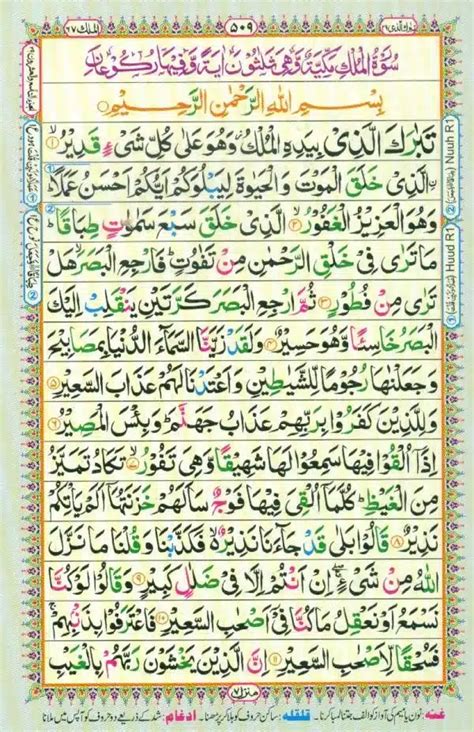 الملك ٦٧
٥٠٩
تبٰرك الذی ٢٩
سُوْرَةُ الْمُلْكِ مَكِّيَّةٌ وَّهِىَ ثَلٰثُوْنَ اٰيَةً وَّفِيْهَا رُكُوْعَانِ
بِسْمِ اللّٰهِ الرَّحْمٰنِ الرَّحِيْمِ
تَبٰرَكَ الَّذِىْ بِيَدِهِ الْمُلْكُ وَهُوَ عَلٰى كُلِّ شَىْءٍ قَدِيْرُ ۙ‏﴿۱﴾
ۨالَّذِىْ خَلَقَ الْمَوْتَ وَالْحَيٰوةَ لِيَبْلُوَكُمْ اَيُّكُمْ اَحْسَنُ عَمَلًا ؕ
وَهُوَ الْعَزِيْزُ الْغَفُوْرُ ۙ‏﴿۲﴾ الَّذِىْ خَلَقَ سَبْعَ سَمٰوٰتٍ طِبَاقًا ؕ
مَا تَرٰى فِىْ خَلْقِ الرَّحْمٰنِ مِنْ تَفٰوُتٍ ؕ فَارْجِعِ الْبَصَرَ ۙ هَلْ
تَرٰى مِنْ فُطُوْرٍ ‏﴿۳﴾ ثُمَّ ارْجِعِ الْبَصَرَ كَرَّتَيْنِ يَنْقَلِبْ اِلَيْكَ
الْبَصَرُ خَاسِئًا وَّهُوَ حَسِيْرٌ ‏﴿۴﴾ وَلَقَدْ زَيَّنَّا السَّمَآءَ الدُّنْيَا بِمَصَابِيْحَ
وَجَعَلْنٰهَا رُجُوْمًا لِّلشَّيٰطِيْنِ وَاَعْتَدْنَا لَهُمْ عَذَابَ السَّعِيْرِ ‏﴿۵﴾
وَلِلَّذِيْنَ كَفَرُوْا بِرَبِّهِمْ عَذَابُ جَهَنَّمَ ؕ وَبِئْسَ الْمَصِيْرُ ‏﴿۶﴾
اِذَاۤ اُلْقُوْا فِيْهَا سَمِعُوْا لَهَا شَهِيْقًا وَّهِىَ تَفُوْرُ ۙ‏﴿۷﴾ تَكَادُ تَمَيَّزُ
مِنَ الْغَيْظِ ؕ كُلَّمَاۤ اُلْقِىَ فِيْهَا فَوْجٌ سَاَلَهُمْ خَزَنَتُهَاۤ اَلَمْ يَاْتِكُمْ
نَذِيْرٌ ‏﴿۸﴾ قَالُوْا بَلٰى قَدْ جَآءَنَا نَذِيْرٌ ۙ فَكَذَّبْنَا وَقُلْنَا مَا نَزَّلَ
اللّٰهُ مِنْ شَىْءٍ ۖۚ اِنْ اَنْتُمْ اِلَّا فِىْ ضَلٰلٍ كَبِيْرٍ ‏﴿۹﴾ وَقَالُوْا لَوْ كُنَّا
نَسْمَعُ اَوْ نَعْقِلُ مَا كُنَّا فِىْۤ اَصْحٰبِ السَّعِيْرِ ‏﴿۱۰﴾ فَاعْتَرَفُوْا بِذَنْۢبِهِمْ ۚ
فَسُحْقًا لِّاَصْحٰبِ السَّعِيْرِ ‏﴿۱۱﴾ اِنَّ الَّذِيْنَ يَخْشَوْنَ رَبَّهُمْ بِالْغَيْبِ
منزل ٧
غنه: نون یا میم کی آواز کو الف جتنا لمبا کرنا۔ قلقله: ساکن حروف کو ہلا کر پڑھنا۔ ادغام: شد کے ذریعے دو حروف کو آپس میں ملانا
Nuuh R1
Huud R1